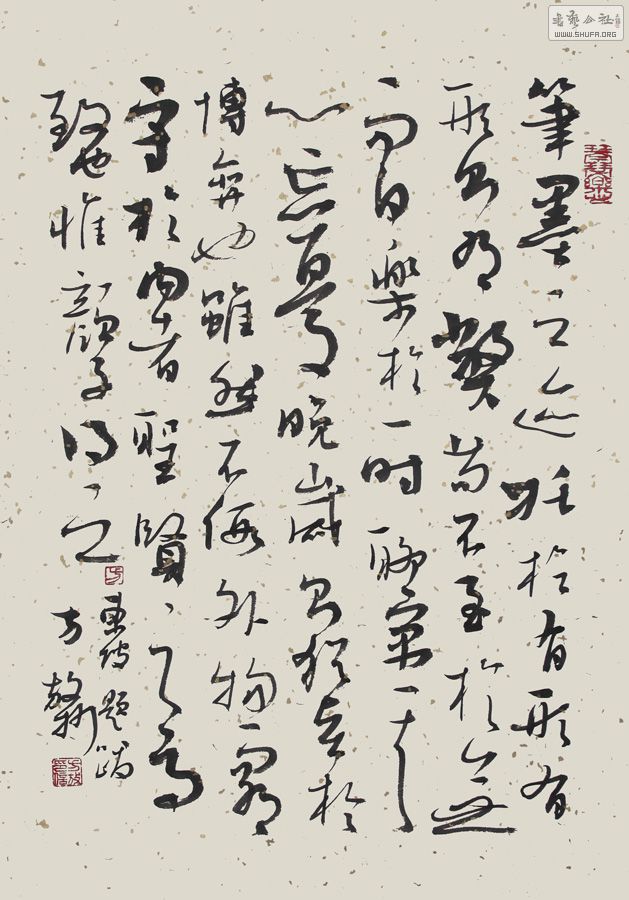 筆墨之迹託於有形有
形則有弊苟不至於無
而自樂於一時聊寓其
心忘憂晚歲則猶賢於
博弈也雖然不假外物而有
守於内者聖賢之高
致也惟顔子得之
東坡題跋
方
書藝公社
WWW.SHUFA.ORG